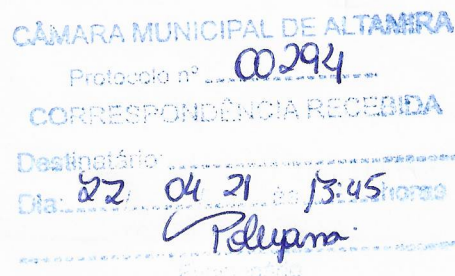 CÂMARA MUNICIPAL DE ALTAMIRA
Protocolo nº 00294
CORRESPONDÊNCIA RECEBIDA
Destinatário:
Dia: 22 / 04 21 às 13:45 horas
Poliyana